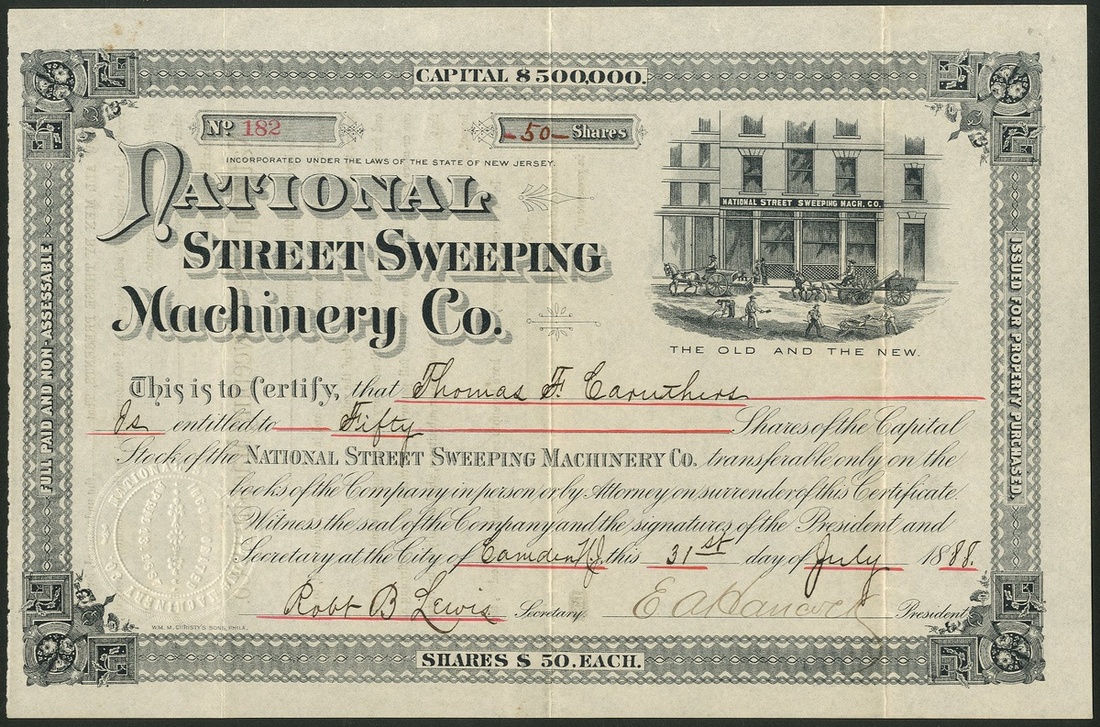 CAPITAL $500,000.
No 182
-50- Shares
INCORPORATED UNDER THE LAWS OF THE STATE OF NEW JERSEY.
NATIONAL
STREET SWEEPING
Machinery Co.
NATIONAL STREET SWEEPING MACH. CO.
THE OLD AND THE NEW.
FULL PAID AND NON-ASSESSABLE
ISSUED FOR PROPERTY PURCHASED.
This is to Certify, that Thomas F. Caruthers
Is entitled to Fifty Shares of the Capital
Stock of the NATIONAL STREET SWEEPING MACHINERY CO. transferable only on the
books of the Company in person or by Attorney on surrender of this Certificate.
Witness the seal of the Company and the signatures of the President and
Secretary at the City of Camden N.J. this 31st day of July 1888.
Robt B Lewis Secretary. E A Hancock President
WM. M. CHRISTY'S SONS, PHILA.
SHARES $50. EACH.